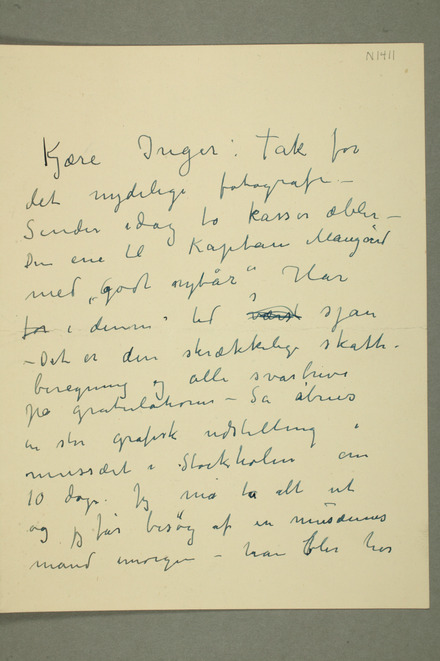 N 1411
Kjære Inger! Tak for
det nydelige fotografi –
Sender idag to kasser æbler –
Den ene til Kaptain
med „godt nytår" Har
for i denne tid været sjau
– Det er den skrækkelige skatte-
beregning og alle svarbreve
på gratulationer – Så åbnes
en stor grafisk udstilling i
musæet i Stockholm om
10 dage. Jeg må ta alt ut
og jeg får besøg af en musæums
mand imorgen – han blir hos